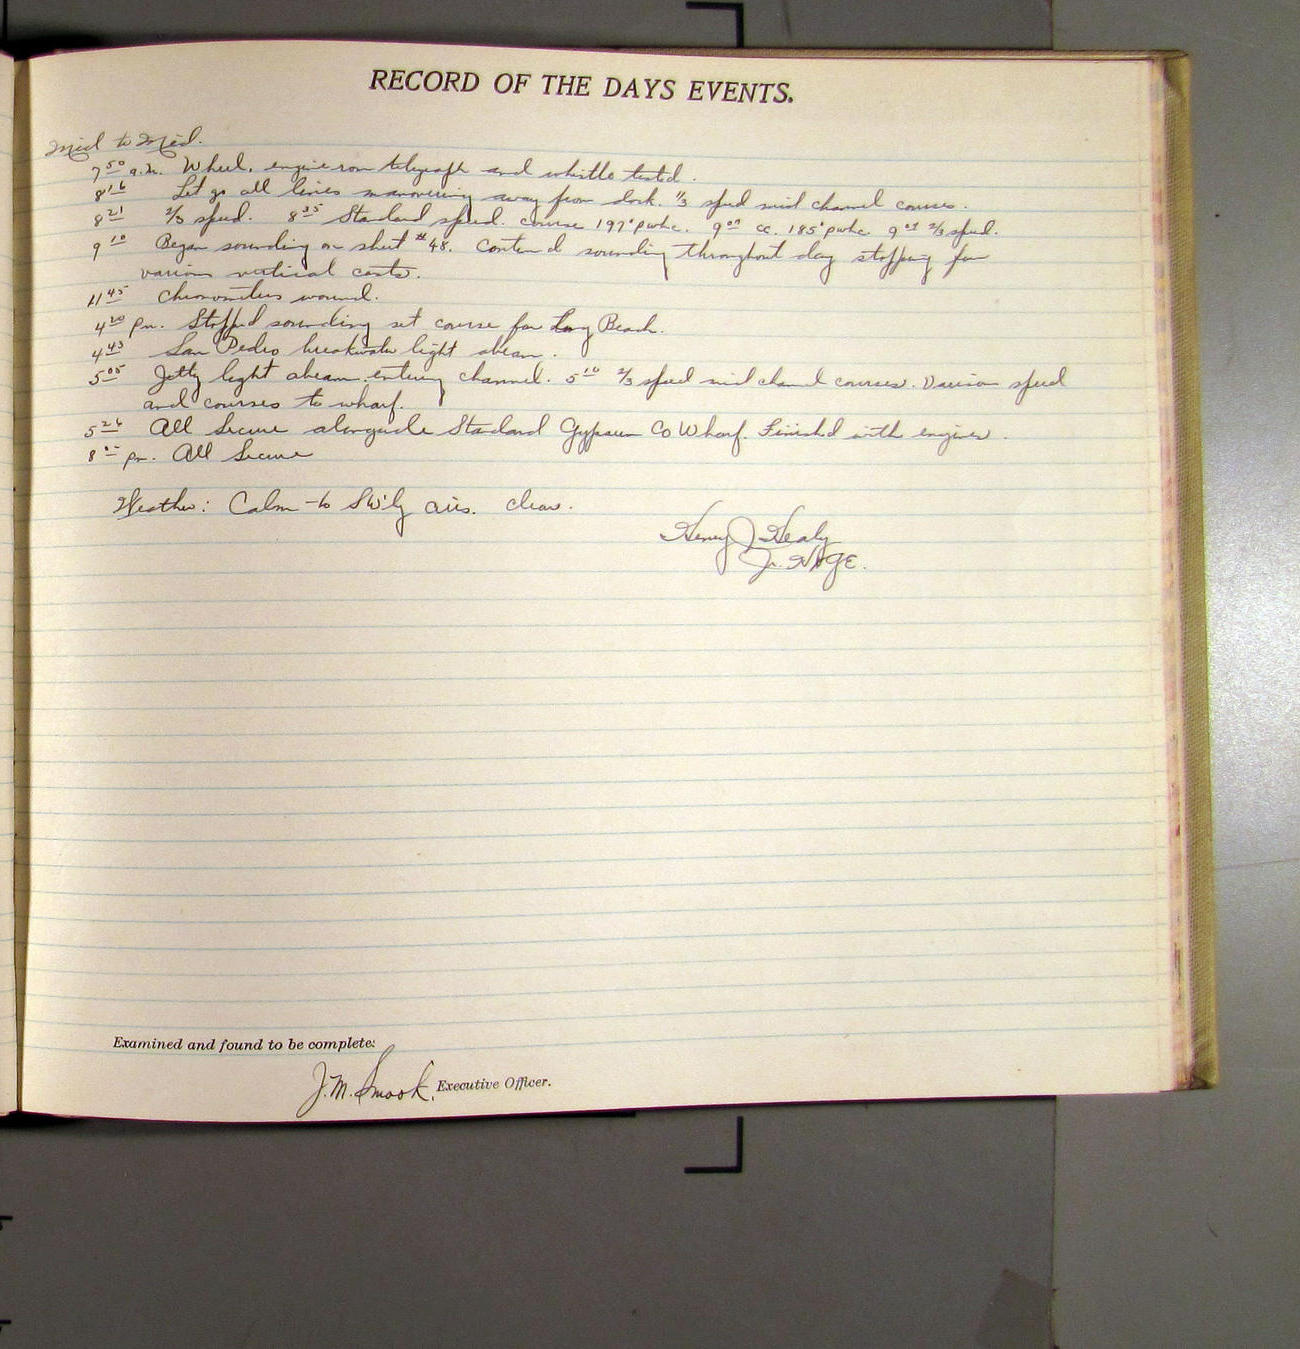 RECORD OF THE DAYS EVENTS.
Mid to Mid.
7 50 a.m. Wheel, engine rom telegraph and whistle tested.
8 16 Let go all lines maneuvering away from dock. 1/3 speed mid channel courses.
8 21 2/3 speed. 8 35 Standard speed. course 197° pwhc. 9 07 cc. 185° pwhc 9 07 2/3 speed.
9 10 Began sounding on sheet #48. Contend sounding throughout day stopping for
various vertical casts.
11 45 Chronometers wound.
4 20 pm. Stopped sounding set course for Long Beach.
4 43 San Pedro breakwater light abeam.
5 05 Jetty light abeam. entering channel. 5 10 2/3 speed mid chanel courses. Various speed
and courses to wharf.
5 26 All Secure alongside Standard Gypsum Co Wharf. Finished with engines.
8 pm. All Secure
Weather: Calm to SW'ly airs. clear.
Henry J Healy
Jr. H&GE.
Examined and found to be complete:
J. M. Smook, Executive Officer.